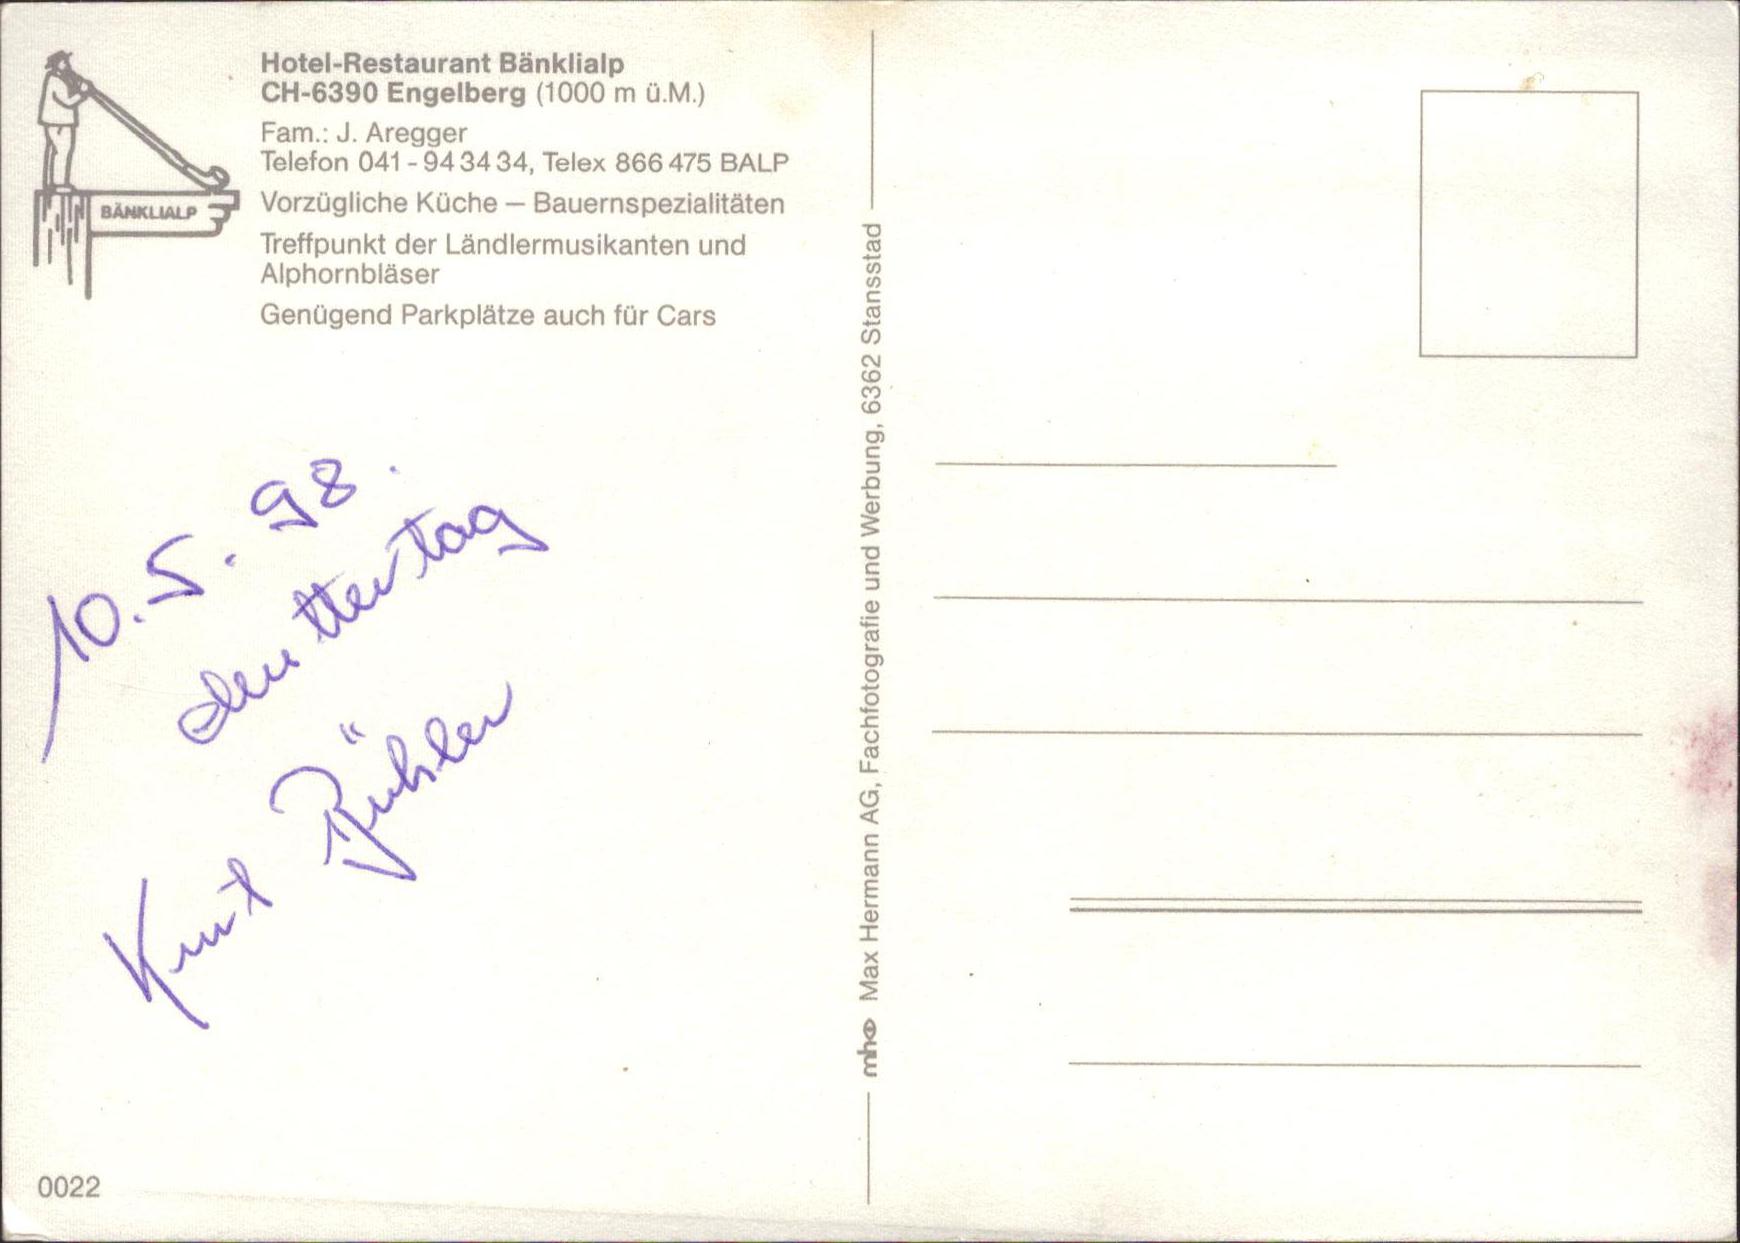 Hotel-Restaurant Bänklialp
CH-6390 Engelberg (1000 m ü.M.)
Fam.: J. Aregger
Telefon 041-94 34 34, Telex 866 475 BALP
Vorzügliche Küche – Bauernspezialitäten
Treffpunkt der Ländlermusikanten und
Alphornbläser
Genügend Parkplätze auch für Cars
BÄNKLIALP
10.5.98.
Kurt Bühler
0022
mh Max Hermann AG, Fachfotografie und Werbung, 6362 Stansstad